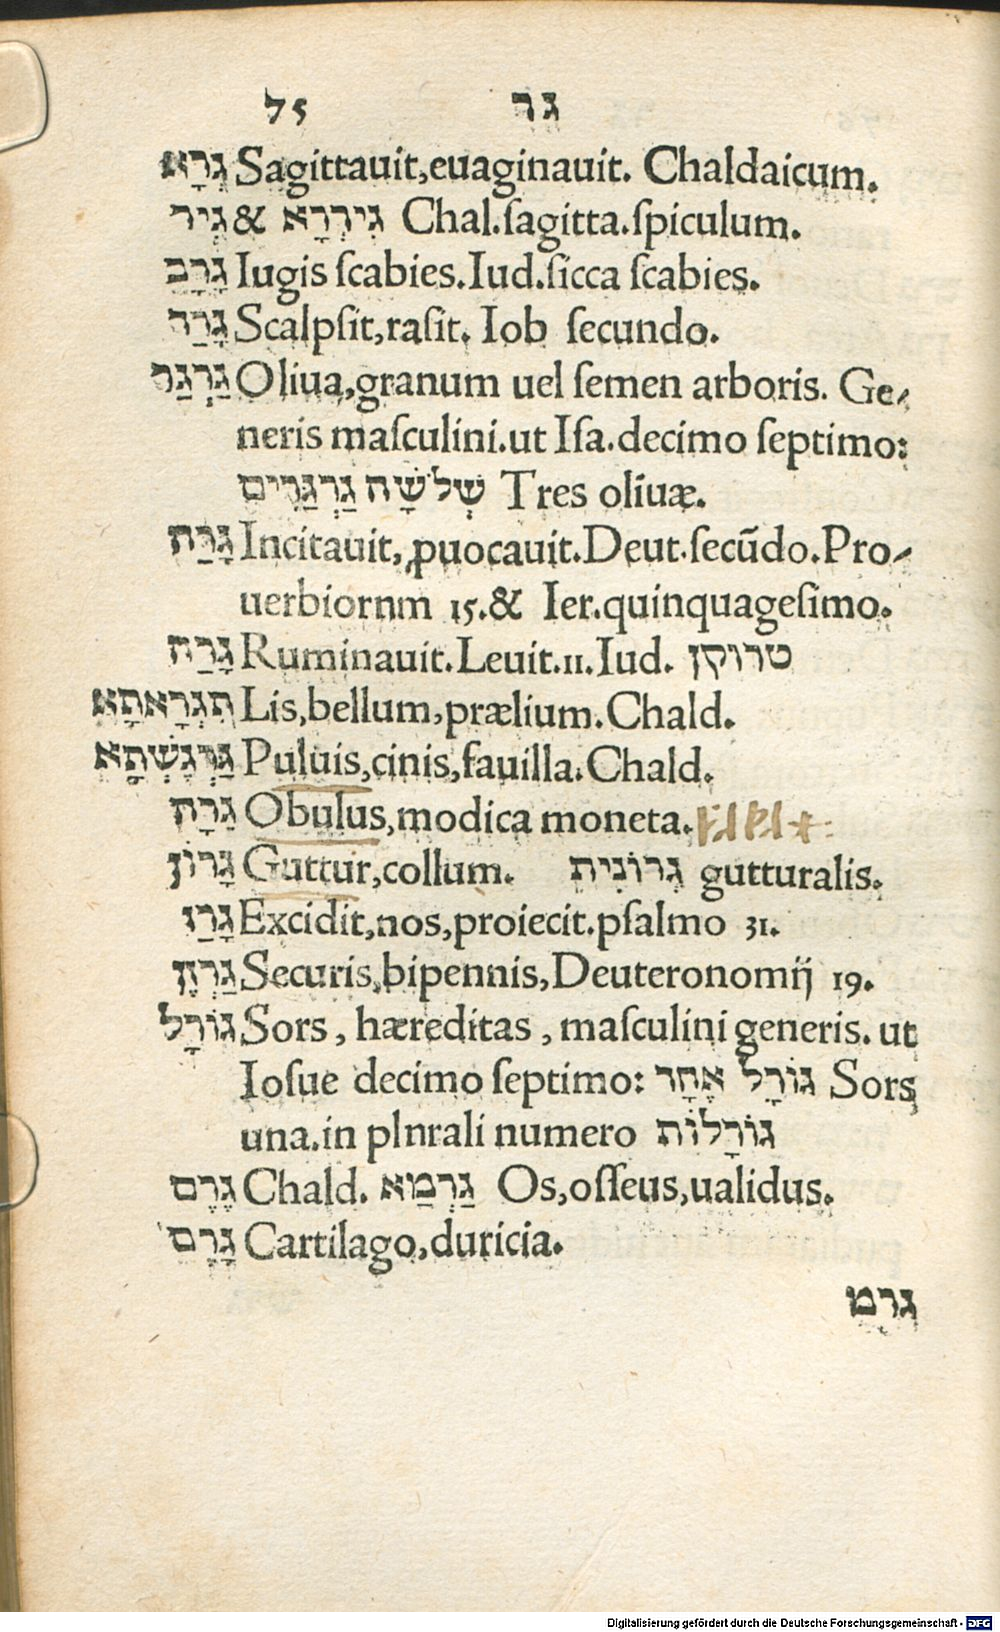 75 גר
גְרָא Sagittauit,euaginauit. Chaldaicum.
גְיר & גִירְרָא Chal.ſagitta.ſpiculum.
גָרָב Iugis ſcabies.Iud.ſicca ſcabies.
גָרַד Scalpſit,raſit. Iob ſecundo.
גַרְגַר Oliua,granum uel ſemen arboris. Ge-
neris maſculini.ut Iſa.decimo ſeptimo:
שְׁלֹשָׁה גַרְגַרִים Tres oliuæ.
גָרַה Incitauit,ꝓuocauit.Deut.ſecūdo.Pro-
uerbiornm 15.& Ier.quinquageſimo.
גָרַה Ruminauit.Leuit.11.Iud. טרוקן
תִגְרָאתָא Lis,bellum,prælium.Chald.
גַרְגֶשְׁתָא Puluis,cinis,fauilla.Chald.
גֵרָה Obulus,modica moneta.
גָרוֹן Guttur,collum. גְרוֹנִית gutturalis.
גָרַז Excidit,nos,proiecit.pſalmo 31.
גַרְזֶן Securis,bipennis,Deuteronomij 19.
גוֹרָל Sors, hæreditas, maſculini generis. ut
Ioſue decimo ſeptimo: גוֹרָל אֶחָד Sors
una.in plnrali numero גוֹרָלוֹת
גֶרֶם Chald. גַרְמַא Os,oſſeus,ualidus.
גֶרֶם Cartilago,duricia.
גרמ
Digitalisierung gefördert durch die Deutsche Forschungsgemeinschaft - DFG